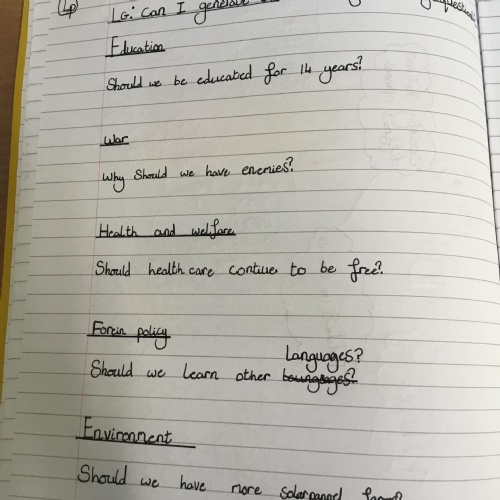 Lp
LG: Can I generate
Education
Should we be educated for 14 years?
War
Why Should we have enemies?
Health and welfare
Should healthcare contiue to be free?
Forein policy
Languages?
Should we learn other
Environment
Should we have more solarpannel